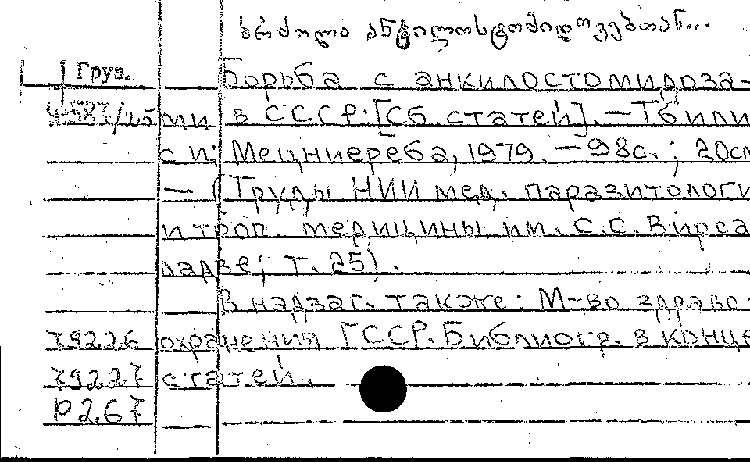 ბრძოლა ანკილოსტომიდოზებთან...
Груз.
Борьба с анкилостомидоза-
ми в СССР: [Сб. статей]. — Тбили
си: Мецниереба, 1979. — 98с.; 20см
— (Труды НИИ мед. паразитологи
и троп. медицины им. С.С. Вирса
ладзе; т. 25).
В надзаг. также: М-во здраво-
79226 охранения ГССР. Библиогр. в конце
79227 статей.
Р2.67